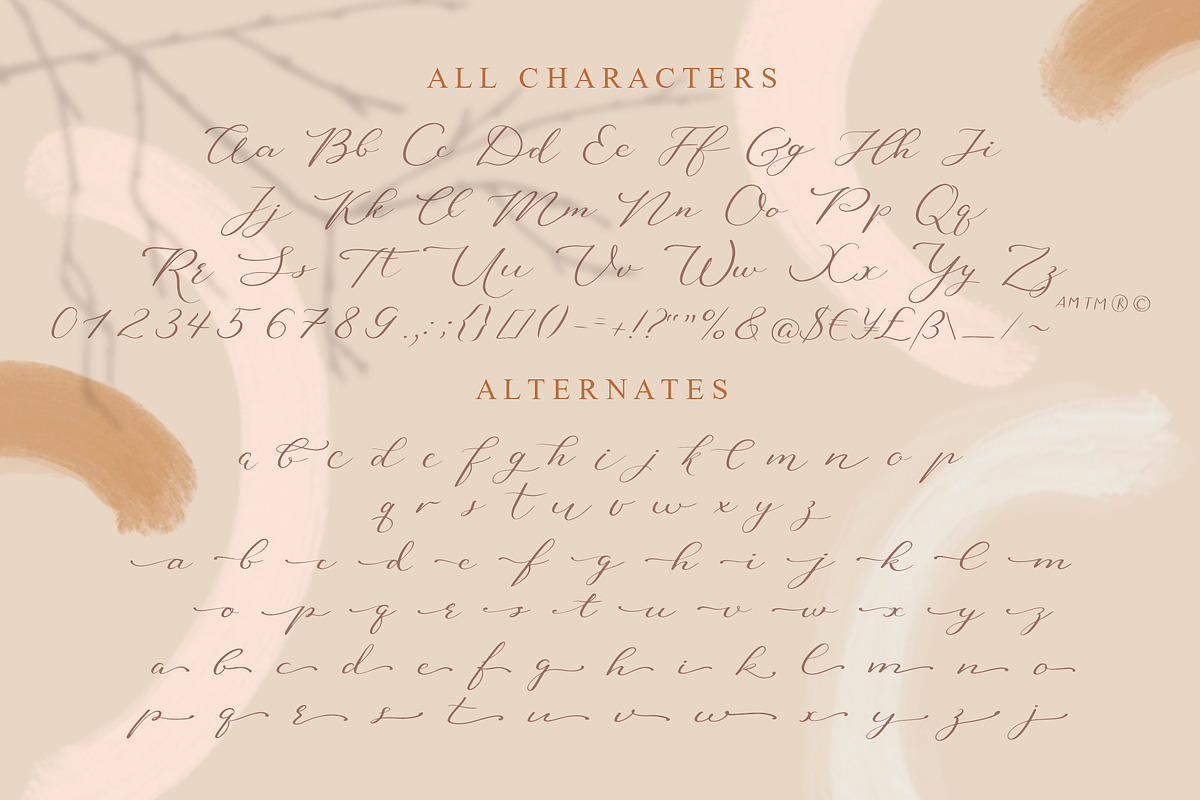 ALL CHARACTERS
Aa Bb Cc Dd Ee Ff Gg Hh Ii
Jj Kk Ll Mm Nn Oo Pp Qq
Rr Ss Tt Uu Vv Ww Xx Yy Zz
0 1 2 3 4 5 6 7 8 9 . , : ; {} [] () - = + ! ? “ ” % & @ $ € ¥ £ ß \ _ / ~ AM TM ® ©
ALTERNATES
a b c d e f g h i j k l m n o p
q r s t u v w x y z
a b c d e f g h i j k l m
o p q r s t u v w x y z
a b c d e f g h i k l m n o
p q r s t u v w x y z j